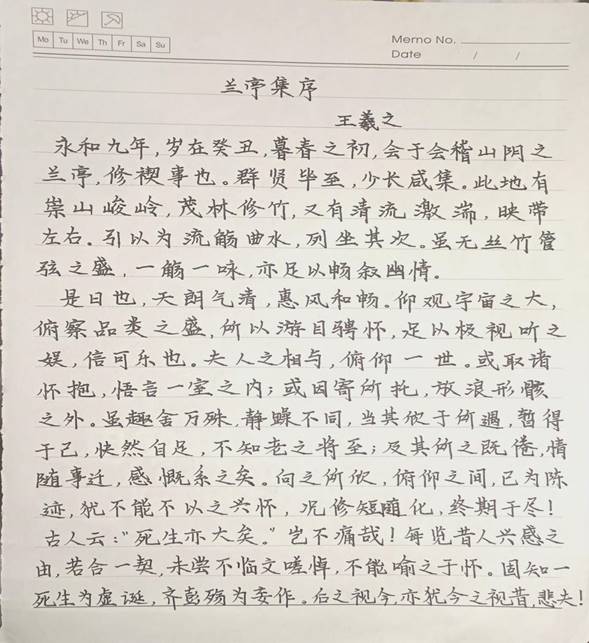 Mo Tu We Th Fr Sa Su
Memo No.
Date / /
兰亭集序
王羲之
永和九年,岁在癸丑,暮春之初,会于会稽山阴之
兰亭,修禊事也。群贤毕至,少长咸集。此地有
崇山峻岭,茂林修竹,又有清流激湍,映带
左右。引以为流觞曲水,列坐其次。虽无丝竹管
弦之盛,一觞一咏,亦足以畅叙幽情。
是日也,天朗气清,惠风和畅。仰观宇宙之大,
俯察品类之盛,所以游目骋怀,足以极视听之
娱,信可乐也。夫人之相与,俯仰一世。或取诸
怀抱,悟言一室之内;或因寄所托,放浪形骸
之外。虽趣舍万殊,静躁不同,当其欣于所遇,暂得
于己,快然自足,不知老之将至;及其所之既倦,情
随事迁,感慨系之矣。向之所欣,俯仰之间,已为陈
迹,犹不能不以之兴怀,况修短随化,终期于尽!
古人云:“死生亦大矣。”岂不痛哉!每览昔人兴感之
由,若合一契,未尝不临文嗟悼,不能喻之于怀。固知一
死生为虚诞,齐彭殇为妄作。后之视今,亦犹今之视昔,悲夫!